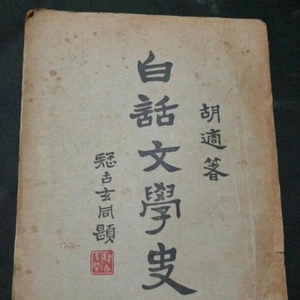 胡適箸
白話文學史
疑古玄同題